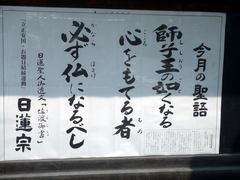 今月の聖語
師子王の如くなる
心をもてる者
必ず仏になるべし
日蓮聖人御遺文「佐渡御書」
「立正安国・お題目結縁運動」
日蓮宗